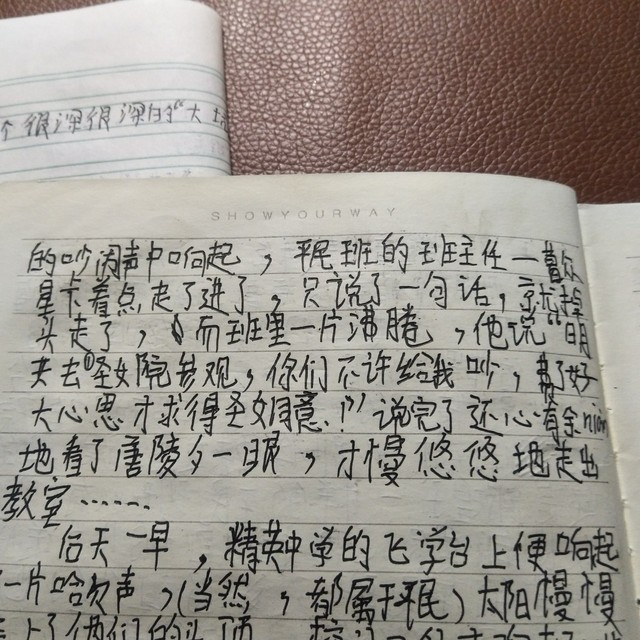 个很深很深的“大
SHOWYOURWAY
的吵闹声中响起，平民班的班主任一着
星卡着点走了进了，只说了一句话，就掉
头走了，而班里一片沸腾，他说“明
天去圣女院参观，你们不许给我吵，费了好
大心思才求得圣女同意！”说完了还心有余nian
地看了唐陵夕一眼，才慢悠悠地走出
教室……
后天一早，精英中学的飞学台上便响起
一片哈欠声，（当然，都属于平民）太阳慢慢
上了他们的头顶